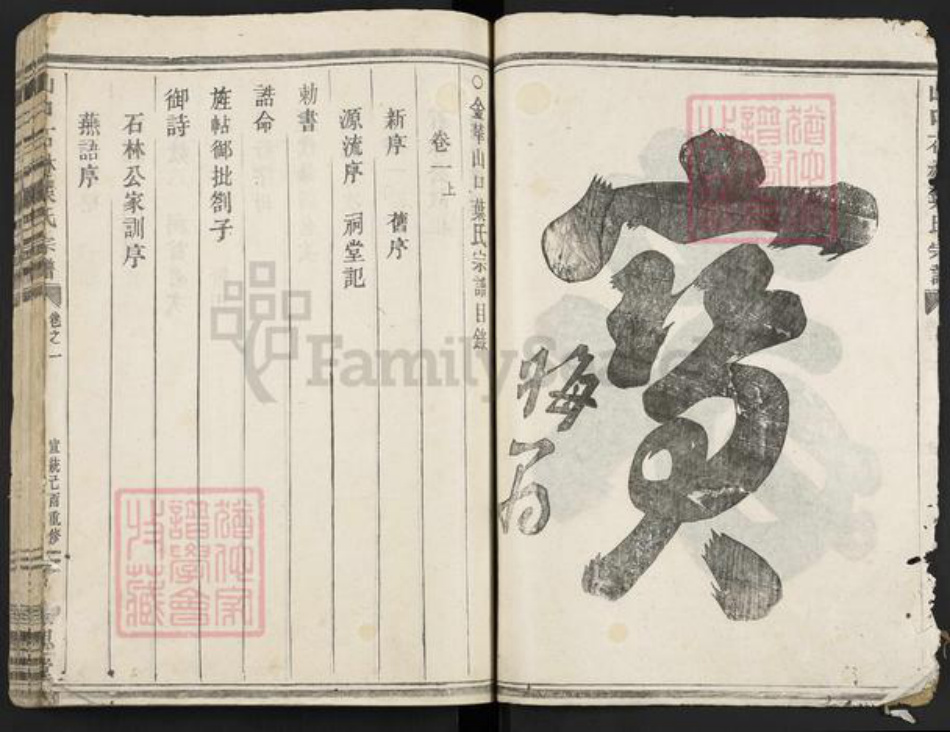 寶
晦翁
○金華山口葉氏宗譜目錄
卷一上
新序　舊序
源流序　祠堂記
勅書
誥命
旌帖御批劄子
御詩
石林公家訓序
燕語序
卷之一
宣統己酉重修
猶他家譜學會收藏
FamilySearch